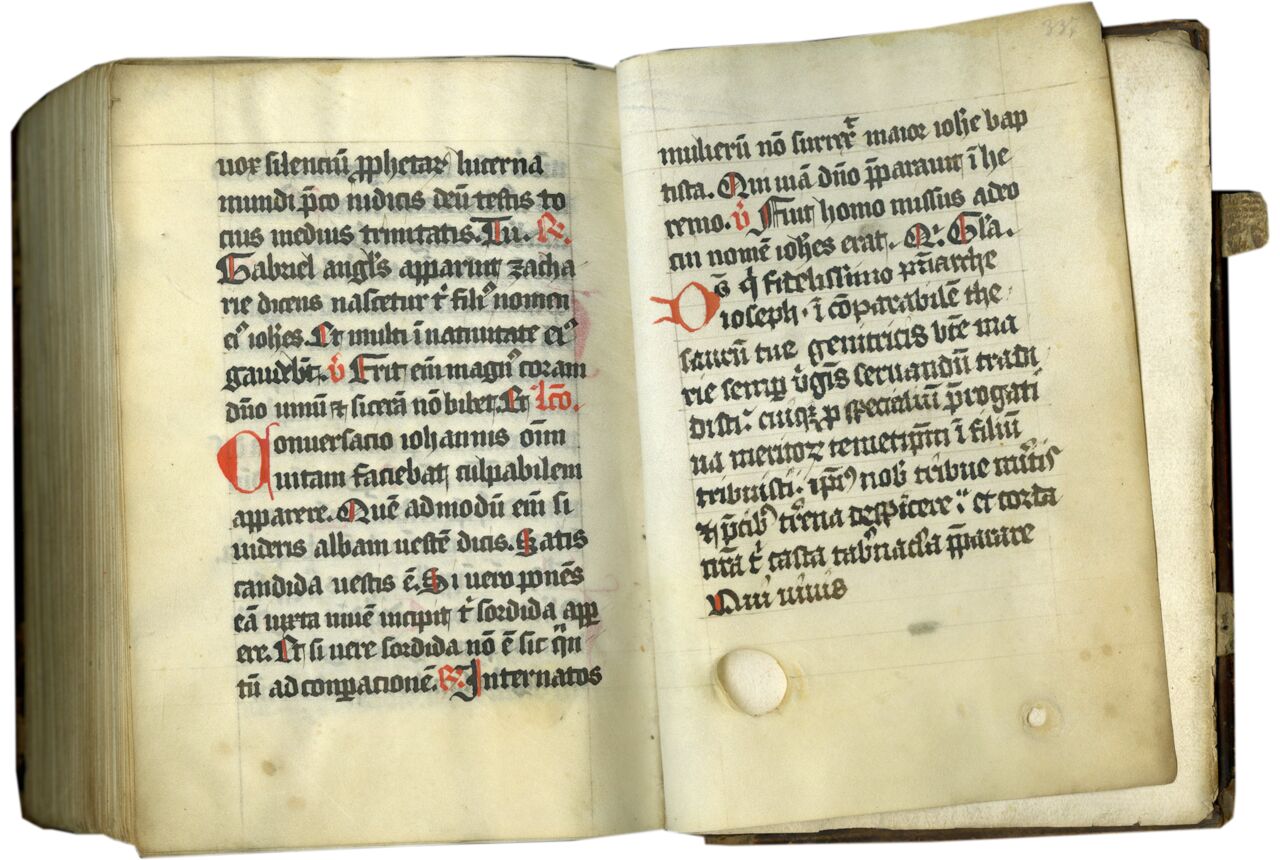 uox silenciū ꝓphetaꝝ lucerna
mundi p̄co iudicis deū testis to
cius medius trinitatis. Tu. R.
Gabriel angl̄s apparuit zacha
rie dicens nascetur t̄ filiꝰ nomen
eiꝰ ioħes. Et multi ī natiuitate eiꝰ
gaudebūt. v̄ Erit eī magnꝰ coram
dn̄o uinū ⁊ sicerā nō bibet. Et lc̄o.
Conuersacio iohannis om̄
uitam faciebat culpabilem
apparere. Quē admodū eī si
uideris albam uestē dicis. Satis
candida uestis ē. Si uero ponēs
eā iuxta niuē incipit t̄ sordida appͣ
ere. Et si uere sordida nō ē sic qͣn
tū ad conꝑacionē. R. Internatos
337
mulierū nō surrex̄ maior ioħe bap
tista. Qui uiā dn̄o p̄parauit ī he
remo. v̄ Fuit homo missus a deo
cui nomē ioħes erat. Q. Gl̄a.
Ds̄ q̄ fidelissimo pr̄iarche
ioseph. ī cōparabilē the
saurū tue genitricis bt̄e ma
rie semꝑ v̄gīs seruandū tradi
disti: cuiꝰqꝫ ꝓ specialiū p̄rogati
ua meritoꝝ temetip̄m ī filiū
tribuisti: ip̄iꝰ nob̄ tribue mītis
⁊ p̄cibꝰ tr̄ena despicere: et corda
nr̄a t̄ casta tab̄nacl̄a p̄parare
Qui uiuis